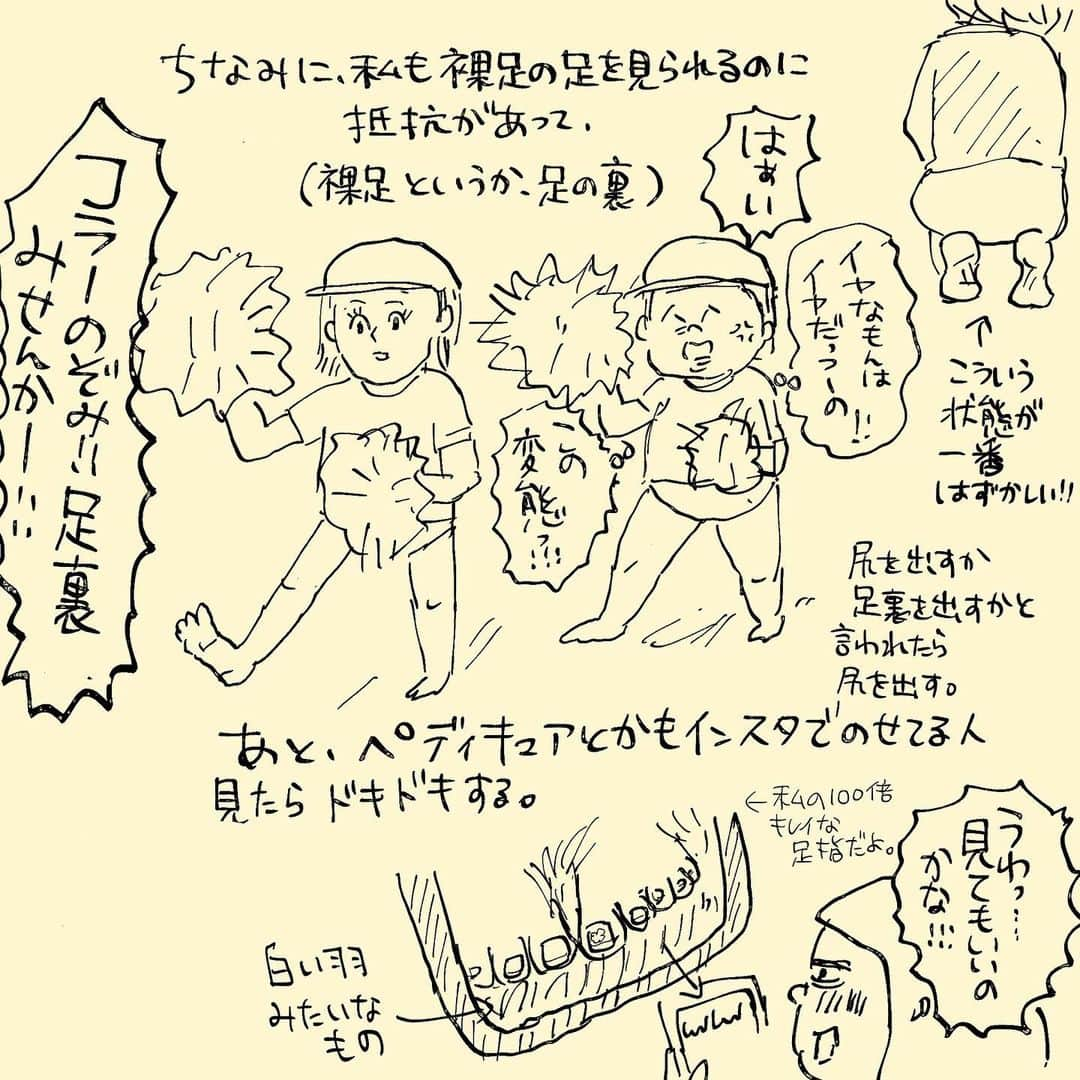 ちなみに、私も裸足の足を見られるのに
抵抗があって、
(裸足というか、足の裏)
コラーのぞみ!!足裏
みせんかー!!!
はぁい
イヤなもんは
イヤだっつーの!!
この
変態っ!!!
↑
こういう
状態が
一番
はずかしい!!
尻を出すか
足裏を出すかと
言われたら
尻を出す。
あと、ペディキュアとかもインスタでのせてる人
見たらドキドキする。
←私の100倍
キレイな
足指だよ。
うわっ…
見てもいいの
かな!!!
白い羽
みたいな
もの